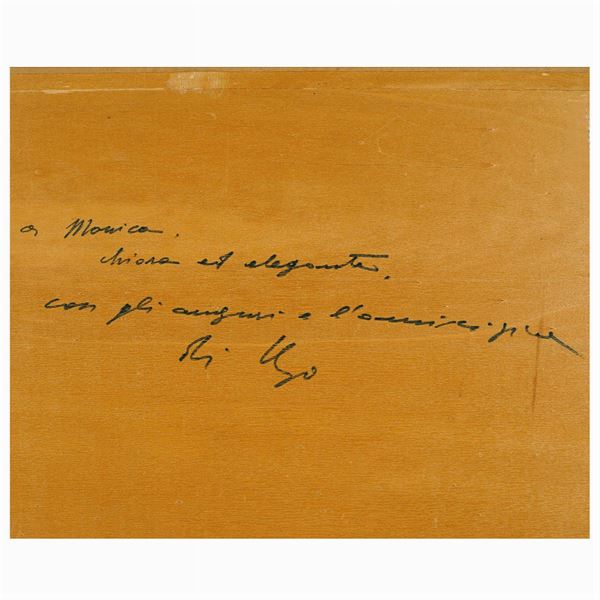 a Monica,
chiara et elegante,
con gli auguri e l'amicizia
di Ugo